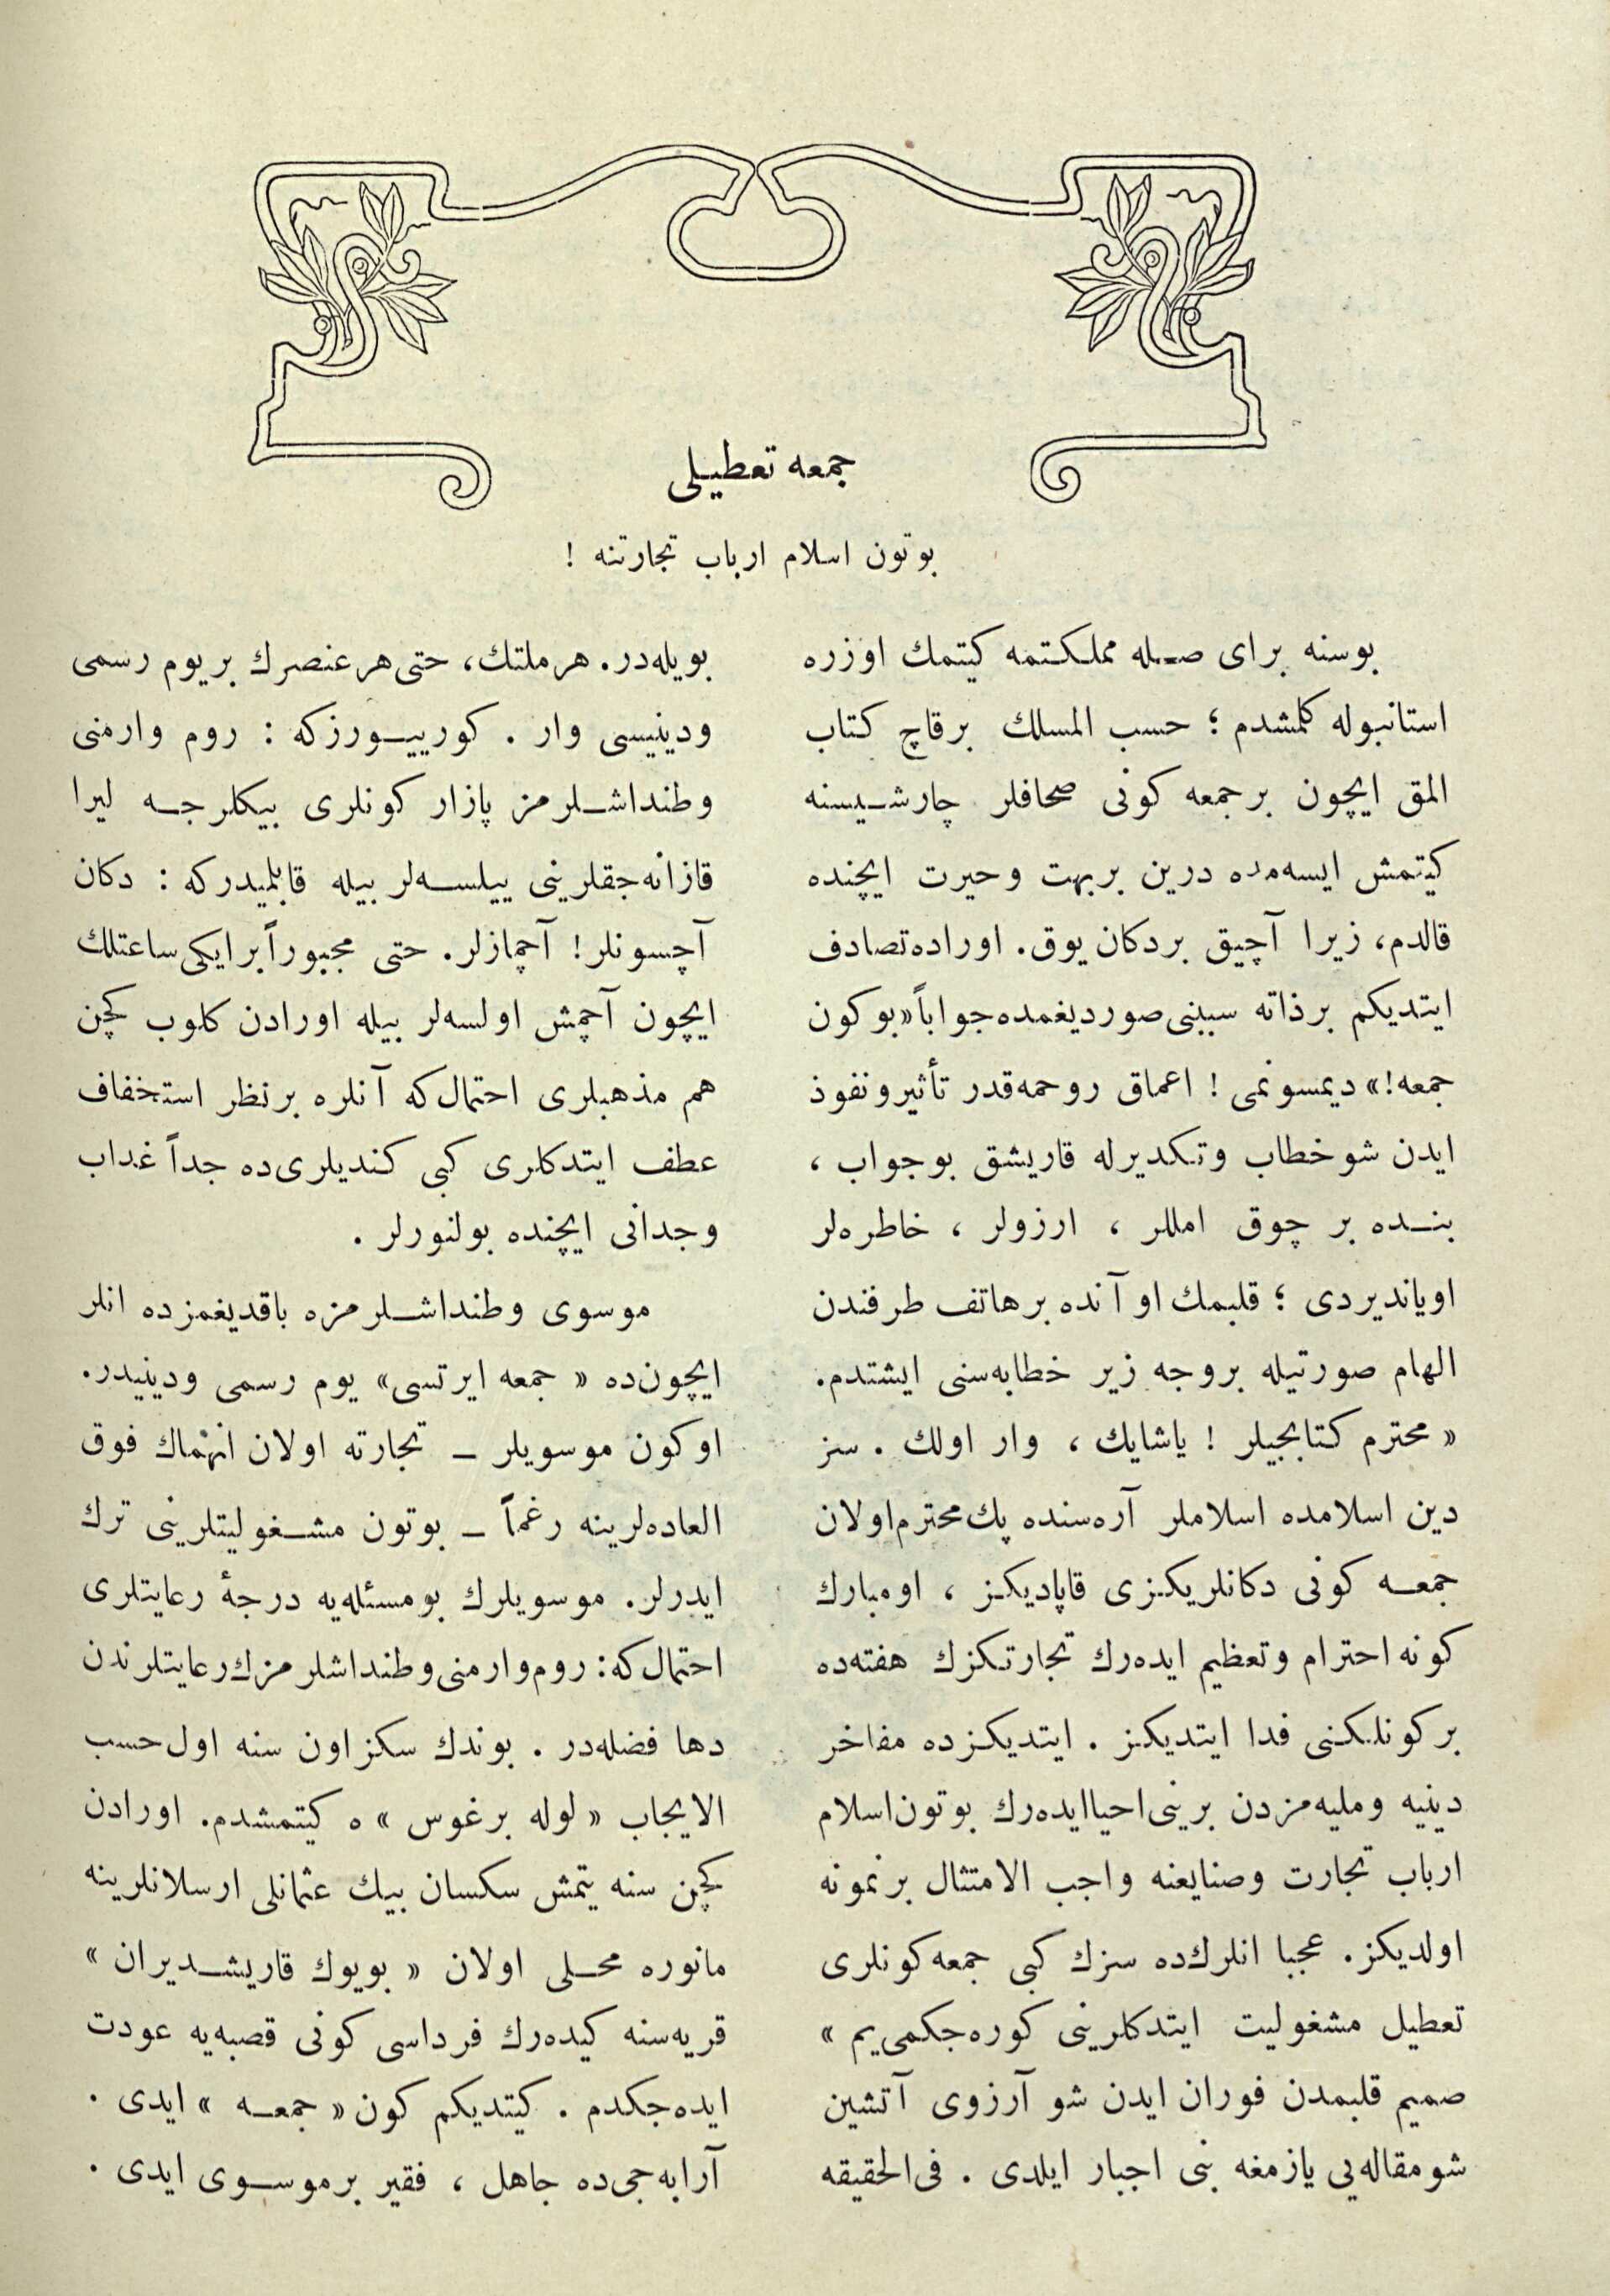 جمعه تعطیلی
بوتون اسلام ارباب تجارتنه !
بوسنه برای صله مملکتمه کیتمك اوزره
استانبوله کلمشدم ؛ حسب المسلك برقاچ کتاب
المق ایچون برجمعه کونی صحافلر چارشیسنه
کیتمش ایسه‌مده درین بربهت وحیرت ایچنده
قالدم، زیرا آچیق بردکان یوق. اوراده تصادف
ایتدیکم برذاته سببنی صوردیغمده جواباً «بوکون
جمعه!» دیمسونمی ! اعماق روحمه‌قدر تأثیرونفوذ
ایدن شوخطاب وتکدیرله قاریشق بوجواب ،
بنده بر چوق امللر ، ارزولر ، خاطره‌لر
اویاندیردی ؛ قلبمك او آنده برهاتف طرفندن
الهام صورتیله بروجه زیر خطابه‌سنی ایشتدم.
« محترم کتابجیلر ! یاشایك ، وار اولك . سز
دین اسلامده اسلاملر آره‌سنده پك محترم اولان
جمعه کونی دکانلریکزی قاپادیکز ، اومبارك
کونه احترام وتعظیم ایده‌رك تجارتکزك هفته‌ده
برکونلکنی فدا ایتدیکز . ایتدیکزده مفاخر
دینیه وملیه‌مزدن برینی احیاایده‌رك بوتون‌اسلام
ارباب تجارت وصنایعنه واجب الامتثال برنمونه
اولدیکز. عجبا انلرك‌ده سزك کبی جمعه کونلری
تعطیل مشغولیت ایتدکلرینی کوره‌جکمی‌یم »
صمیم قلبمدن فوران ایدن شو آرزوی آتشین
شومقاله‌یی یازمغه بنی اجبار ایلدی . فی‌الحقیقه
بویله‌در. هرملتك، حتی هرعنصرك بریوم رسمی
ودینیسی وار . کورییورزکه : روم وارمنی
وطنداشلرمز پازار کونلری بیکلرجه لیرا
قازانه‌جقلرینی بیلسه‌لر بیله قابلمیدرکه : دکان
آچسونلر! آچمازلر. حتی مجبوراً برایکی ساعتلك
ایچون آچمش اولسه‌لر بیله اورادن کلوب کچن
هم مذهبلری احتمال‌که آنلره برنظر استخفاف
عطف ایتدکلری کبی کندیلری‌ده جداً عذاب
وجدانی ایچنده بولنورلر .
موسوی وطنداشلرمزه باقدیغمزده انلر
ایچون‌ده « جمعه ایرتسی» یوم رسمی ودینیدر.
اوکون موسویلر ـ تجارته اولان انهماك فوق
العاده‌لرینه رغماً ـ بوتون مشغولیتلرینی ترك
ایدرلر. موسویلرك بومسئله‌یه درجهٔ رعایتلری
احتمال‌که: روم‌وارمنی‌وطنداشلرمزك‌رعایتلرندن
دها فضله‌در . بوندك سکزاون سنه اول حسب
الایجاب « لوله برغوس » ه کیتمشدم. اورادن
کچن سنه یتمش سکسان بیك عثمانلی ارسلانلرینه
مانوره محلی اولان « بویوك قاریشدیران »
قریه‌سنه کیده‌رك فرداسی کونی قصبه‌یه عودت
ایده‌جکدم . کیتدیکم کون « جمعه » ایدی .
آرابه‌جی‌ده جاهل ، فقیر برموسوی ایدی .